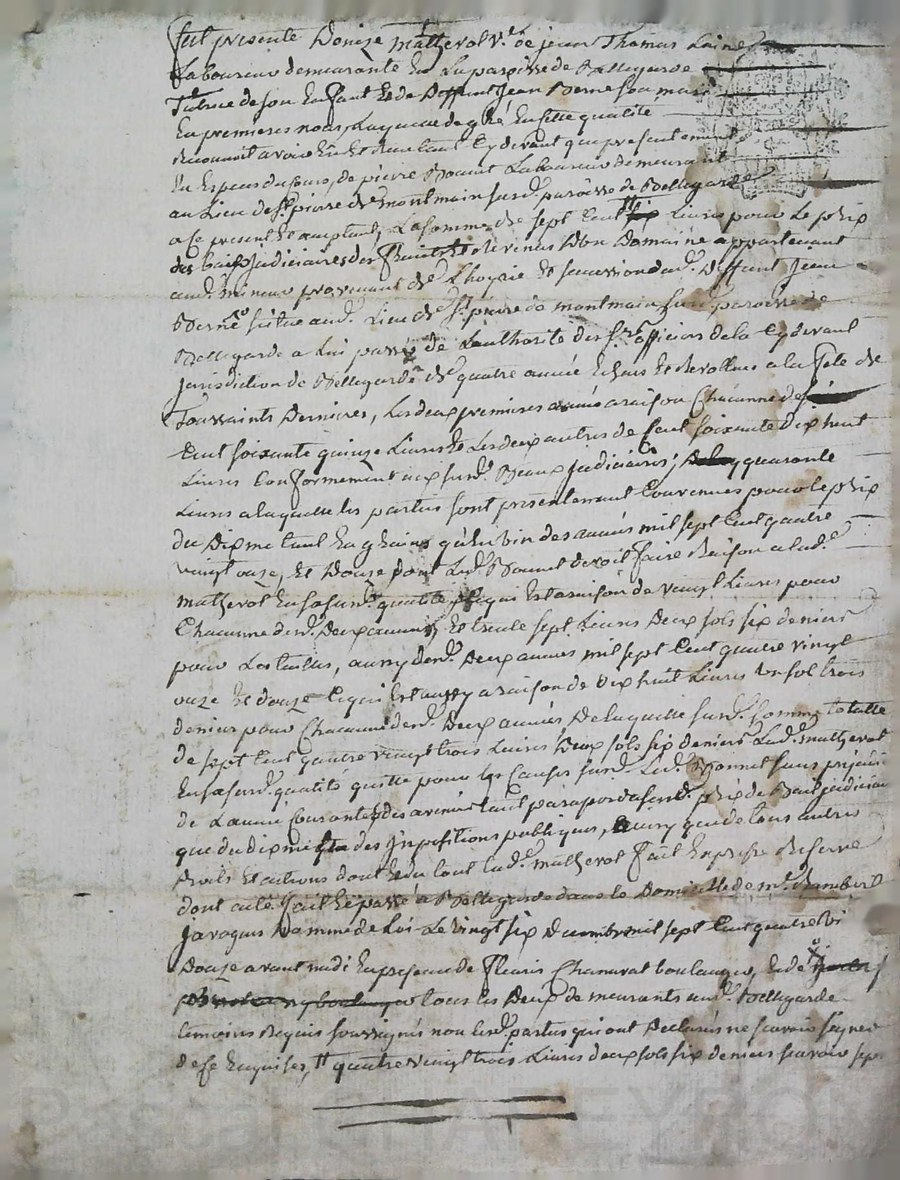 fut presente Denize Matheval v.e de jean Thomas Lainé
Laboureur demeurante En La paroisse de Bellegarde
Tutrice de son Enfant Et de Deffunt Jean Berne son mari
En premieres noces, Laquelle de gré En cette qualité
Reconnoit avoir Eû Et Receu tant Cy devant que presentement
En Especes du Cours, de pierre Bonnet Laboureur demeurant
au Lieu de S.t pierre de montmain surd. paroisse de Bellegarde
a Ce present Et acceptant, La somme de sept Cent Livres pour Le prix
des baux judiciaires des fruits Et Revenus d'un Domaine appartenant
aud. mineur provenant de L'hoyrie Et succession dud. Deffunt Jean
Berne situé aud. Lieu de S.t pierre de montmain susd. paroisse de
Bellegarde a Lui passé de L'authorité des S.rs officiers de la Cy devant
Jurisdiction de Bellegarde de quatre année Echues Et Revollues a la fete de
Toussaints Derniere, Les deux premieres années a raison Chacunne de
Cent soixante quinze Livres Et Les deux autres de Cent soixante dix huit
Livres Conformement aux susd. Beaux judiciaires; quarante
Livres a laquelle les parties sont presentement Convenues pour le prix
du Dixme tant En grains qu'En vin des années mil sept Cent quatre
vingt onze, Et Douze dont Led. Bonnet devoit faire Raison a lad.e
matheval En sa susd. qualité Ce qui Est a raison de vingt Livres pour
Chacunne desd. Deux années Et trente sept Livres Deux sols six deniers
pour Les tailles, aussy desd. Deux années mil sept Cent quatre vingt
onze Et Douze Ce qui Est aussy a raison de Dix huit Livres un sol trois
deniers pour Chacunne desd. Deux années De laquelle susd. somme totalle
de sept Cent quatre vingt trois Livres Deux sols six deniers Lad. matheval
En sa susd. qualité quitte pour Les Causes susd. Led. Bonnet sans prejudice
de L'année Courante Et des avenir tant par raport dususd. prix de Bail judiciaire
que du Dixme des Impositions publiques, aussy que de tous autres
Droits Et actions dont Et du tout Lad. matheval fait Expresse Reserve
dont acte fait Et passé a Bellegarde dans le Domicille de m.e Rambert
Javogues homme de Loi Le vingt six Decembre mil sept Cent quatre
Douze avant midi En presence de fleuris Chanurat boulanger, Et de
tous les Deux demeurants aud. Bellegarde
temoins Requis soussignés non Lesd. parties qui ont Declarés ne scavoir signer
de ce Enquises, quatre vingt trois Livres deux sols six deniers scavoir sept